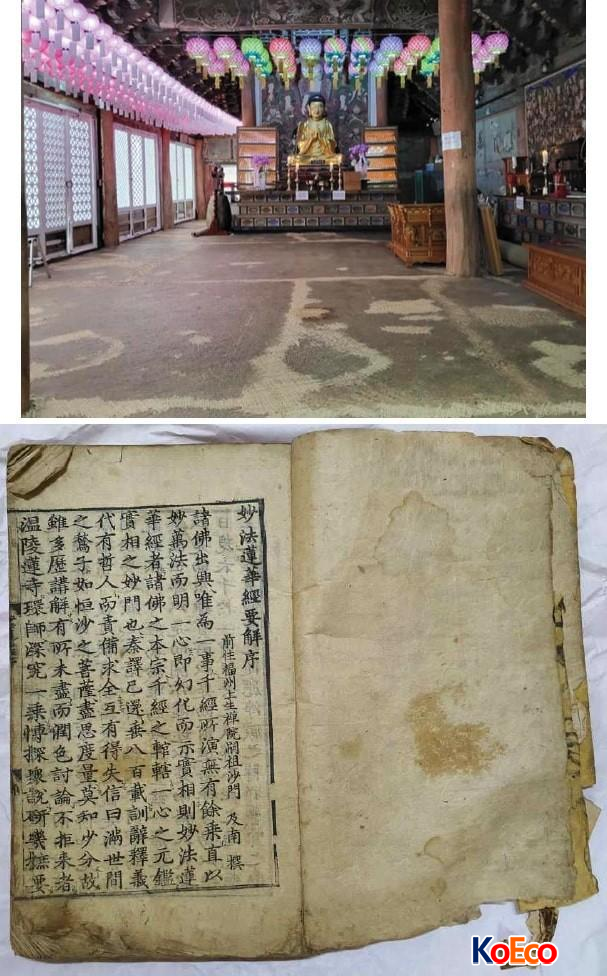 妙法蓮華經要解序
前住福州上生禪院嗣祖沙門 及南 撰
諸佛出興唯為一事千經所演無有餘乘直以
妙萬法而明一心即幻化而示實相則妙法蓮
華經者諸佛之本宗千經之輨轄一心之元鑑
實相之妙門也秦譯已還垂八百載訓辭釋義
代有哲人而責備求全互有得失信曰滿世間
之鶖子如恒沙之菩薩盡思度量莫知少分故
雖多歷講解有所未盡而潤色討論不拒來者
溫陵蓮寺環師深究一乘愽探衆說研幾摭要
KoEco